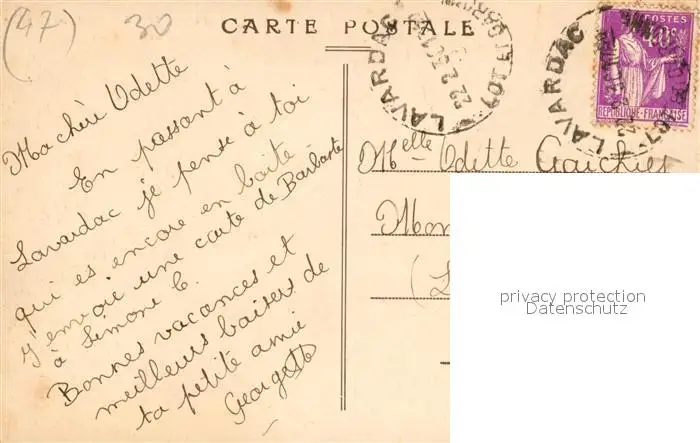 (47)
30
CARTE POSTALE
LAVARDAC
LOT-ET-GARONNE
LAVARDAC
POSTES
40c
REPUBLIQUE FRANÇAISE
Ma chère Odette
En passant à
Lavardac je pense à toi
qui es encore en boîte
J'envoie une carte de Barbaste
à Simone C.
Bonnes vacances et
meilleurs baisers de
ta petite amie
Georgette
Melle Odette
Mon
(L
privacy protection
Datenschutz